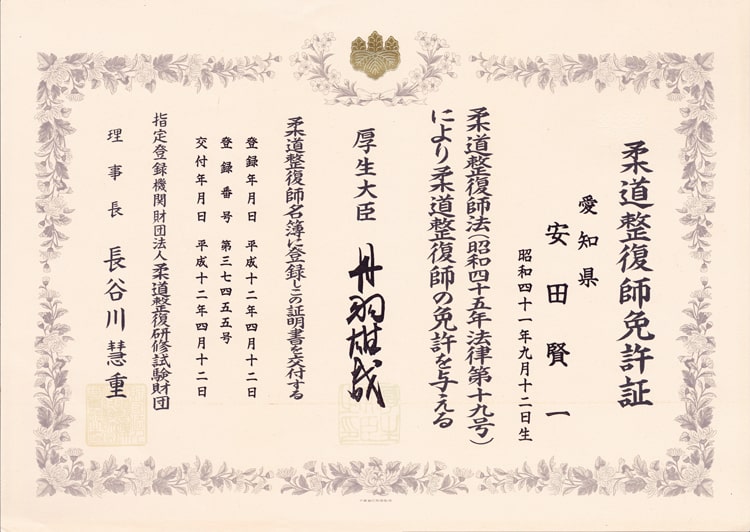 柔道整復師免許証
愛知県
安田賢一
昭和四十一年九月十二日生
柔道整復師法(昭和四十五年法律第十九号)
により柔道整復師の免許を与える
厚生大臣 丹羽雄哉
柔道整復師名簿に登録しこの証明書を交付する
登録年月日 平成十二年四月十二日
登録番号 第三七四五五号
交付年月日 平成十二年四月十二日
指定登録機関財団法人柔道整復研修試験財団
理事長 長谷川慧重